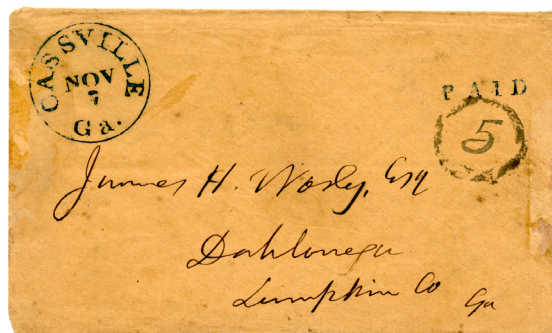 CASSVILLE
NOV
7
Ga.
PAID
5
James H. Worly, Esq
Dahlonega
Lumpkin Co Ga